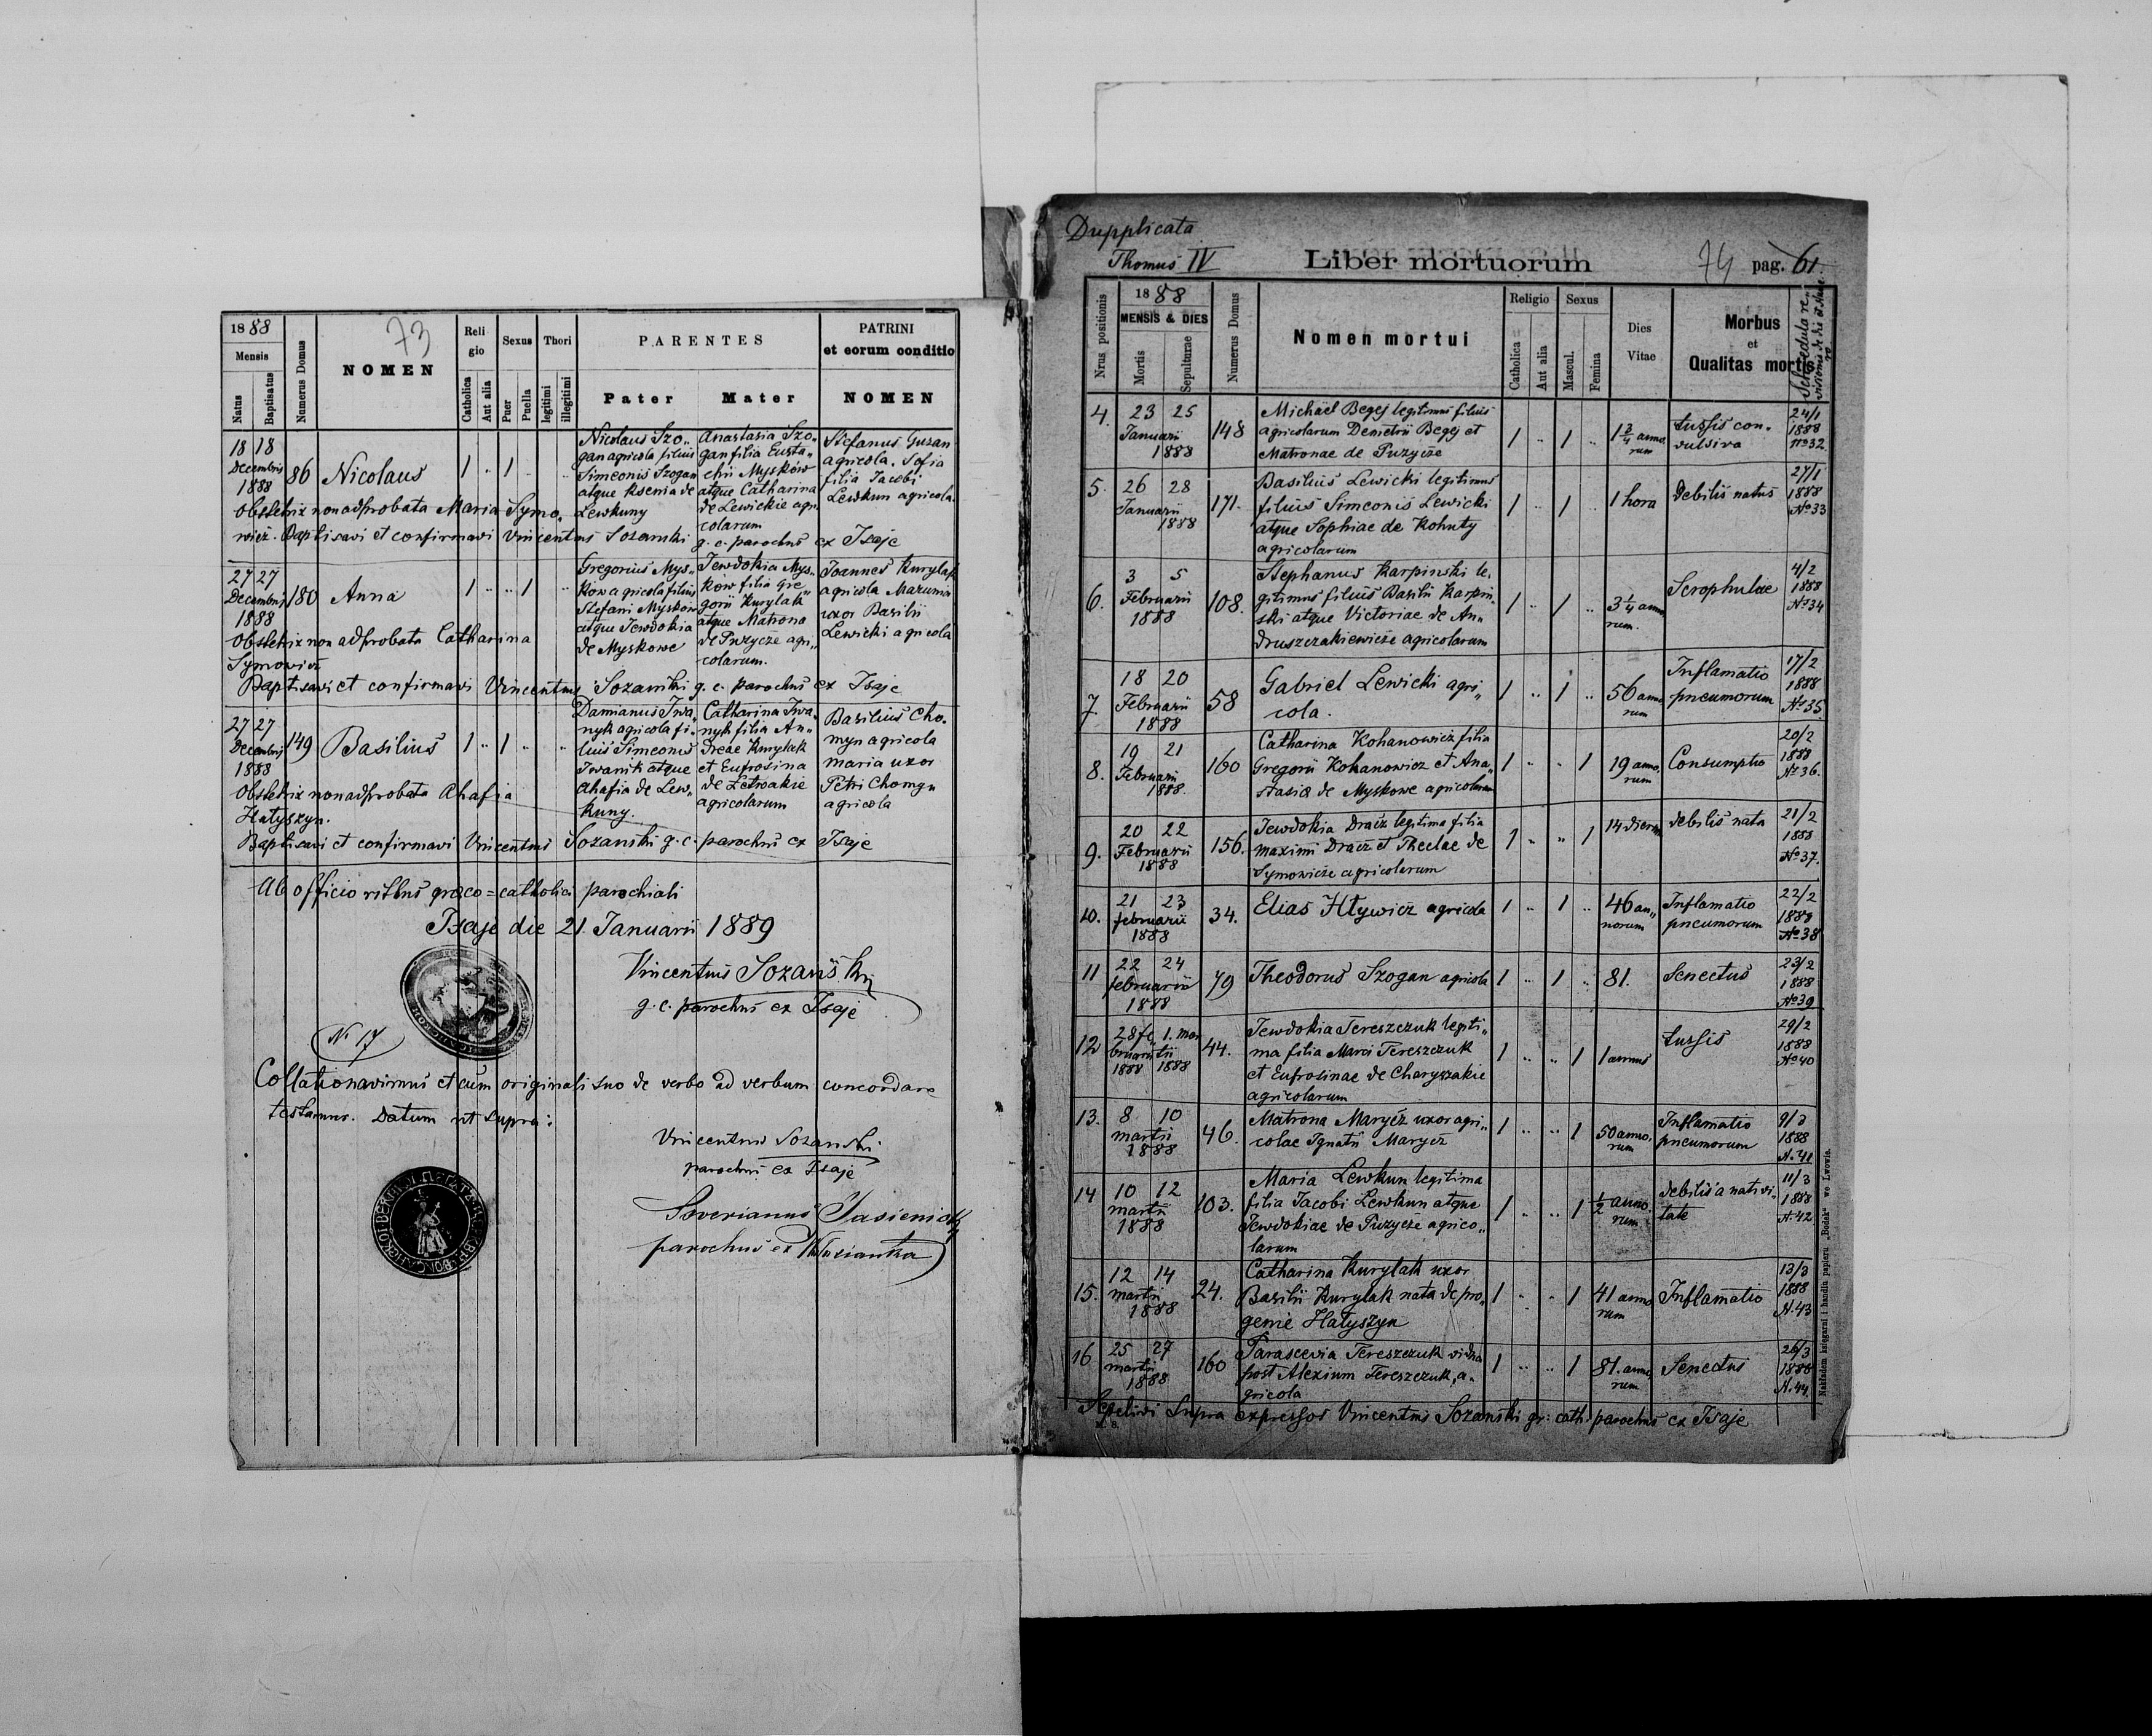 1888
Mensis
Natus
Baptisatus
Numerus Domus
NOMEN
73
Religio
Catholica
Aut alia
Sexus
Puer
Puella
Thori
legitimi
illegitimi
PARENTES
Pater
Mater
PATRINI
et eorum conditio
NOMEN
18 18
Decembris
1888
86
Nicolaus
1 .. 1
Nicolaus Szo„
gan agricola filius
Simeonis Szogan
atque Ksenia de
Lewkuny
Anastasia Szo„
gan filia Eusta„
chii Myskow
atque Catharina
de Lewickie agri
colarum
Stefanus Guzan
agricola. Sofia
filia Jacobi
Lewkun agricola.
Obstetrix non adprobata Maria Symo„
wicz. Baptisavi et confirmavi Vincentus Sozanski g. c. parochus ex Isaje
27 27
Decembris
1888
180
Anna
1 .. .. 1
Gregorius Mys„
kow agricola filius
Stefani Myskow
atque Jewdokia
de Myskowe
Jewdokia Mys„
kow filia Gre„
gorii Kurylak
atque Matrona
de Puzycze agri„
colarum.
Joannes Kurylak
agricola
uxor Basilii
Lewicki agricola
Obstetrix non adprobata Catharina
Symowicz
Baptisavi et confirmavi Vincentus Sozanski g. c. parochus ex Isaje
27 27
Decembris
1888
149
Basilius
1 .. 1 ..
Damianus Iwa„
nyk agricola fi„
lius Simeonis
Iwanik atque
Ahafia de Lew„
kuny.
Catharina Iwa„
nyk filia An„
dreae Kurylak
et Eufrosina
agricolarum
Basilius Cho„
myn agricola
Maria uxor
Petri Chomyn
agricola
Obstetrix non adprobata Ahafia
Hatyszyn.
Baptisavi et confirmavi Vincentus Sozanski g. c. parochus ex Isaje
Ab officio ritus graeco=catholici parochiali
Isaje die 21. Januarii 1889
Vincentus Sozański
g. c. parochus ex Isaje
N. 17
Collationavimus et cum originali suo de verbo ad verbum concordare
testamur. Datum ut supra:
Vincentus Sozanski
parochus ex Isaje
Soverianus Jasienicki
parochus ex
Dupplicata
Thomus IV
Liber mortuorum
74 pag. 61.
Nrus positionis
1888
MENSIS & DIES
Mortis
Sepulturae
Numerus Domus
Nomen mortui
Religio
Catholica
Aut alia
Sexus
Mascul.
Femina
Dies
Vitae
Morbus
et
Qualitas mortis
4. 23 25
Januarii
1888
148
Michael Begej legitimus filius
agricolarum Demetrii Begej et
Matronae de Puzycze
1 .. 1 ..
1 3/4 anno„
rum
tussis con„
vulsiva
24/1
1888
No 32
5. 26 28
Januarii
1888
171.
Basilius Lewicki legitimus
filius Simeonis Lewicki
atque Sophiae de Kohuty
agricolarum
1 .. 1 ..
1 hora
debilis natus
27/1
1888
No 33
6. 3 5
Februarii
1888
108.
Stephanus Karpinski le„
gitimus filius Basilii Karpin„
ski atque Victoriae de An„
druszczakiewicze agricolarum
1 .. 1 ..
3 1/4 anno
rum.
Scrophulae
4/2
1888
No 34
7. 18 20
Februarii
1888
58
Gabriel Lewicki agri„
cola.
1 .. 1 ..
56 anno
rum
Inflamatio
pneumorum
17/2
1888
No 35
8. 19 21
Februarii
1888.
160
Catharina Kohanowicz filia
Gregorii Kohanowicz et Ana„
stasia de Myskowe agricolarum
1 .. .. 1
19 anno„
rum
Consumptio
20/2
1888
No 36.
9. 20 22
Februarii
1888
156.
Jewdokia Dracz legitima filia
Maximi Dracz et Theclae de
Symowicze agricolarum
1 .. .. 1
14 dierum
debilis nata
21/2
1888
No 37.
10. 21 23
februarii
1888
34.
Elias Hlywicz agricola
1 .. 1 ..
46 an„
norum
Inflamatio
pneumorum
22/2
1888
No 38
11 22 24
februarii
1888
79
Theodorus Szogan agricola
1 .. 1 ..
81.
Senectus
23/2
1888
No 39
12 28 fe„ 1. mar
bruarii tii
1888 1888
44.
Jewdokia Tereszczuk legiti„
ma filia Marci Tereszczuk
et Eufrosinae de Charyszakie
agricolarum
1 .. .. 1
1 annus
tussis
29/2
1888
No 40
13. 8 10
martii
1888
46.
Matrona Marycz uxor agri„
colae Ignatii Marycz
1 .. .. 1
50 anno„
rum
Inflamatio
pneumorum
9/3
1888
N. 41
14 10 12
martii
1888
103.
Maria Lewkun legitima
filia Jacobi Lewkun atque
Jewdokiae de Puzycze agrico„
larum
1 .. .. 1
1/2 anno
rum
debilis a nativi„
tate
11/3
1888
N. 42
15. 12 14
martii
1888
24.
Catharina Kurylak uxor
Basilii Kurylak nata de pro„
genie Hatyszyn
1 .. .. 1
41 anno
rum
Inflamatio
13/3
1888
N. 43
16 25 27
martii
1888
160
Parascevia Tereszczuk vidua
post Alexium Tereszczuk, a„
gricola
1 .. .. 1
81. anno
rum
Senectus
26/3
1888
N. 44.
Sepelivi supra expressos Vincentus Sozanski gr: cath. parochus ex Isaje
Nakładem księgarni i handlu papieru „Bodek" we Lwowie.